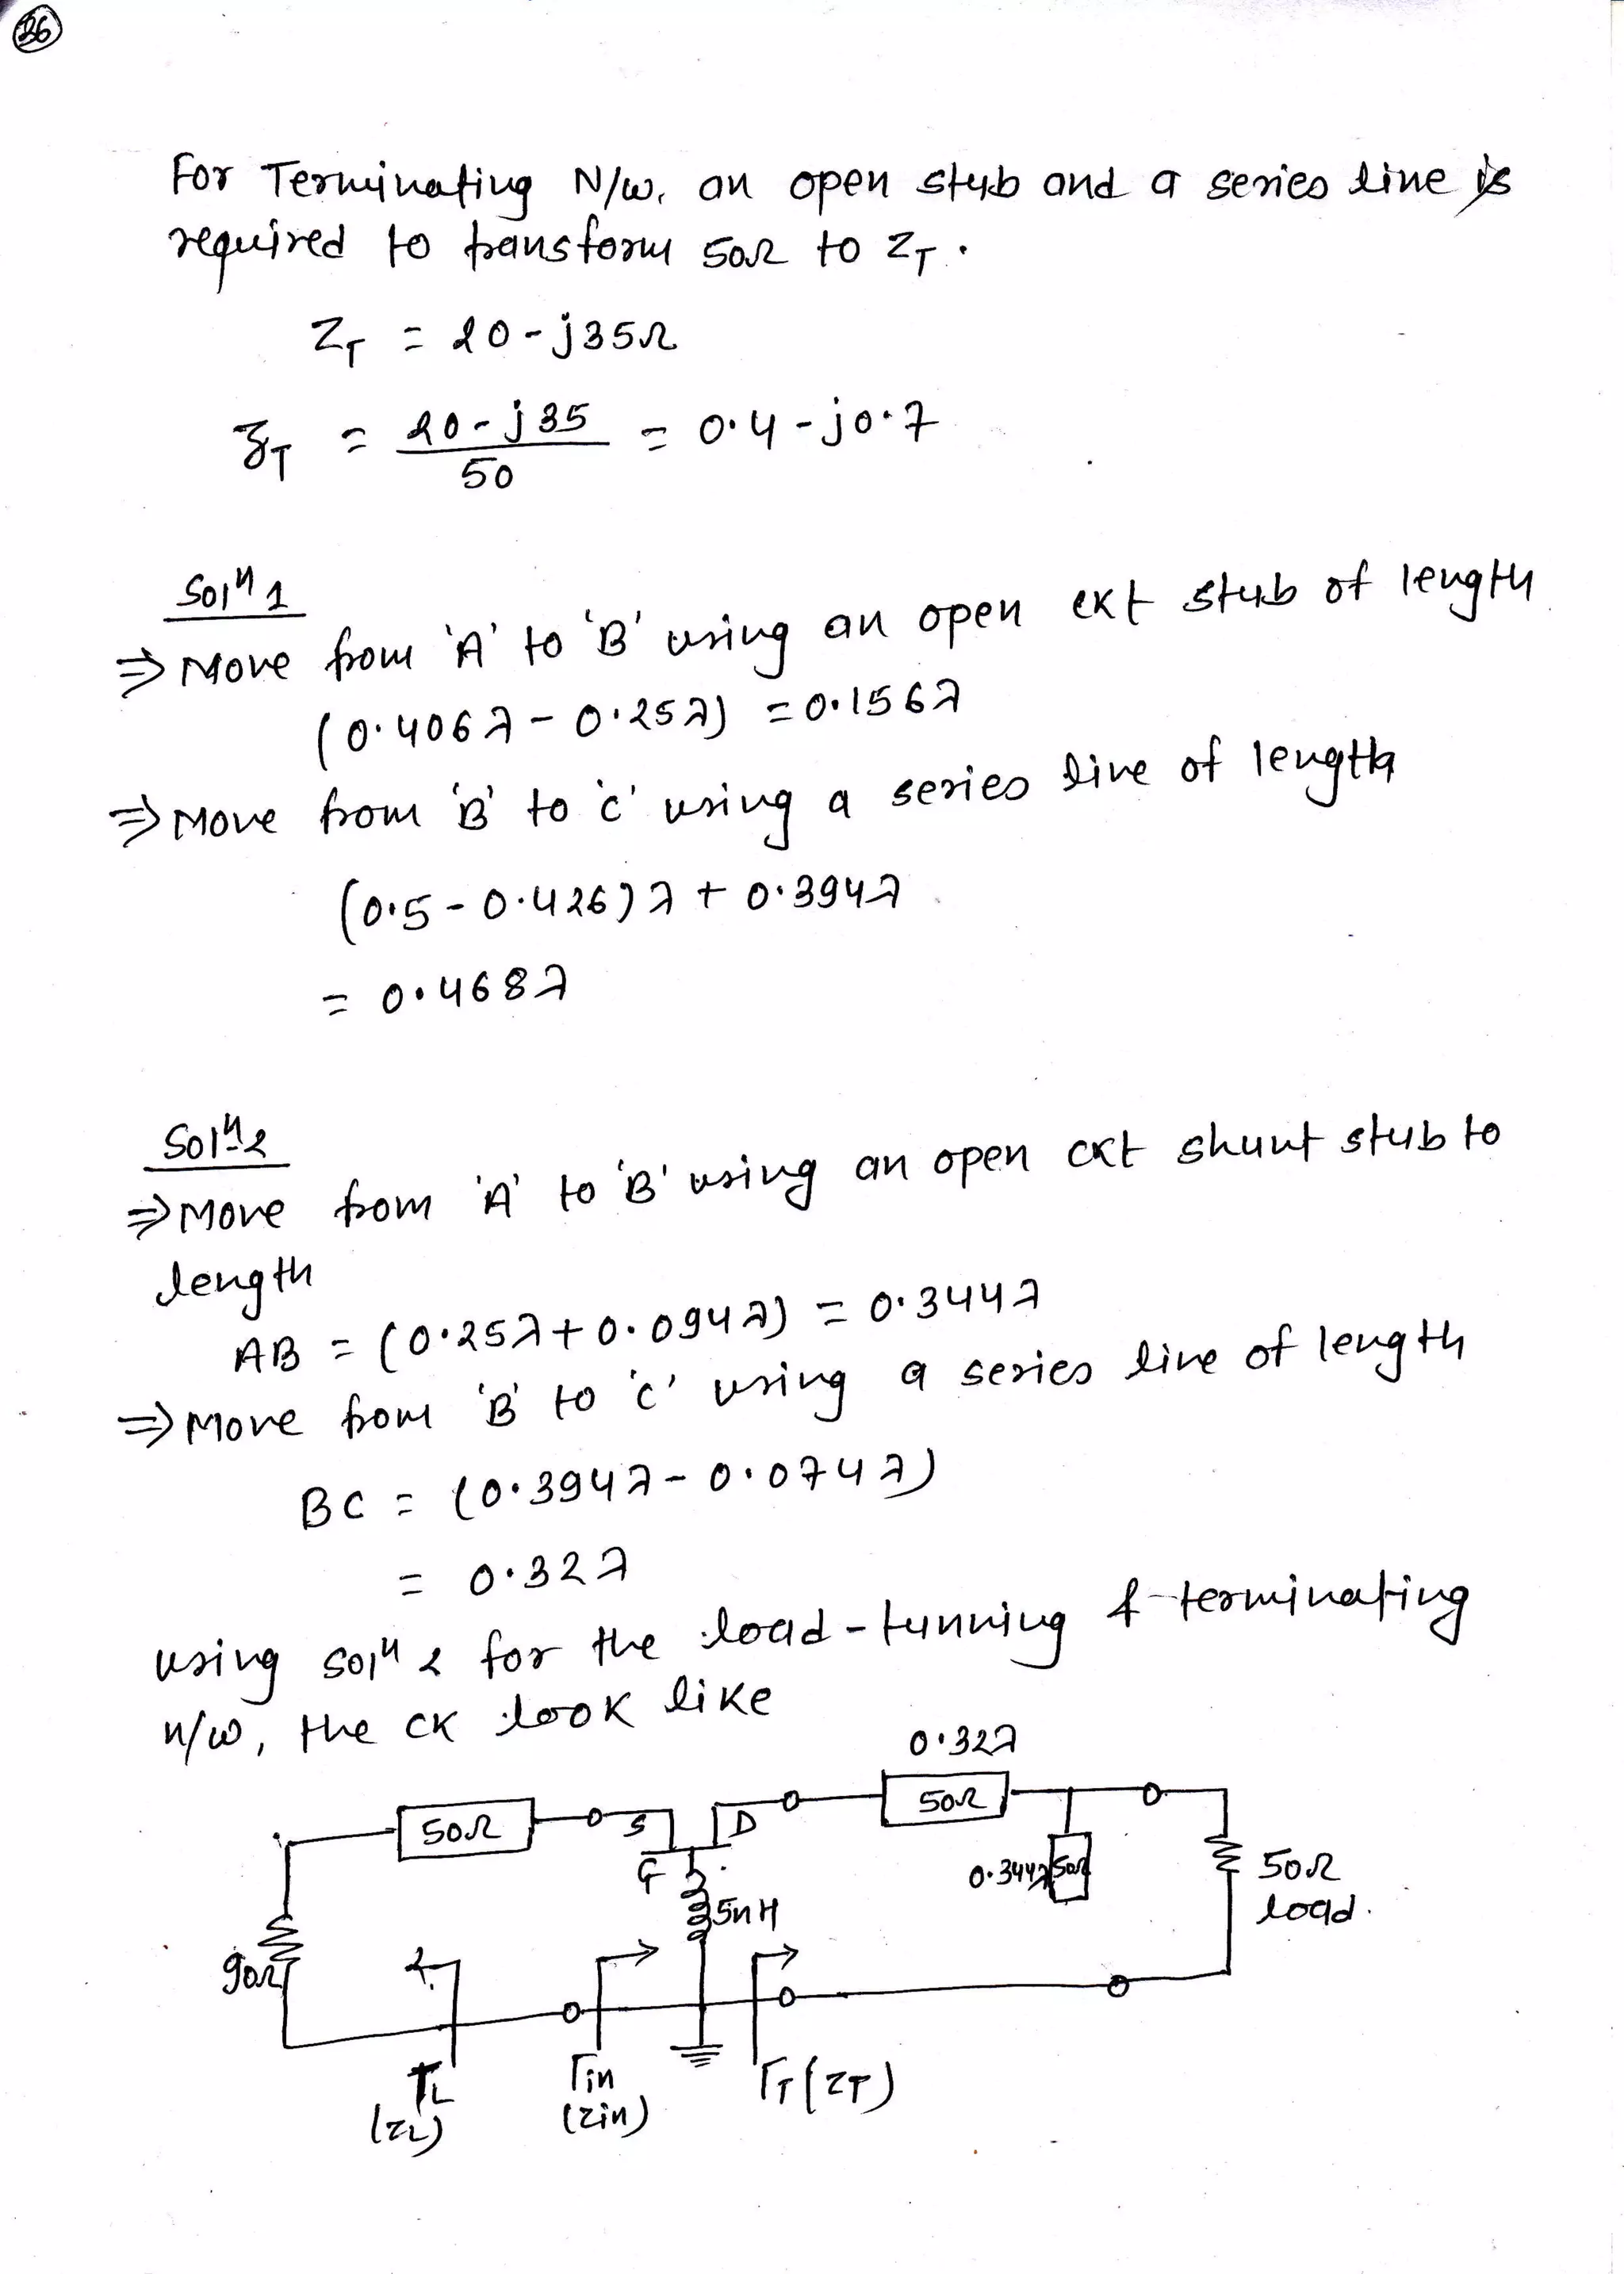 36
For Terminating N/w, an open stub and a series line is
required to transform 50Ω to ZT.
ZT = 20 - j35Ω
zT = 20 - j35 / 50 = 0.4 - j0.7
Solⁿ 1
⇒ Move from 'A' to 'B' using an open ckt stub of length
(0.406λ - 0.25λ) = 0.156λ
⇒ Move from 'B' to 'C' using a series line of length
(0.5 - 0.426)λ + 0.394λ
= 0.468λ
Solⁿ-2
⇒ Move from 'A' to 'B' using an open ckt shunt stub to
length
AB = (0.25λ + 0.094λ) = 0.344λ
⇒ Move from 'B' to 'C' using a series line of length
BC = (0.394λ - 0.074λ)
= 0.32λ
using solⁿ 2 for the load-tunning & terminating
n/w, the ck look like
0.32λ
50Ω
S
D
50Ω
G
0.344λ
50Ω
50Ω
load.
5nH
90Ω
ΓL
(ZL)
Γin
(Zin)
ΓT (ZT)